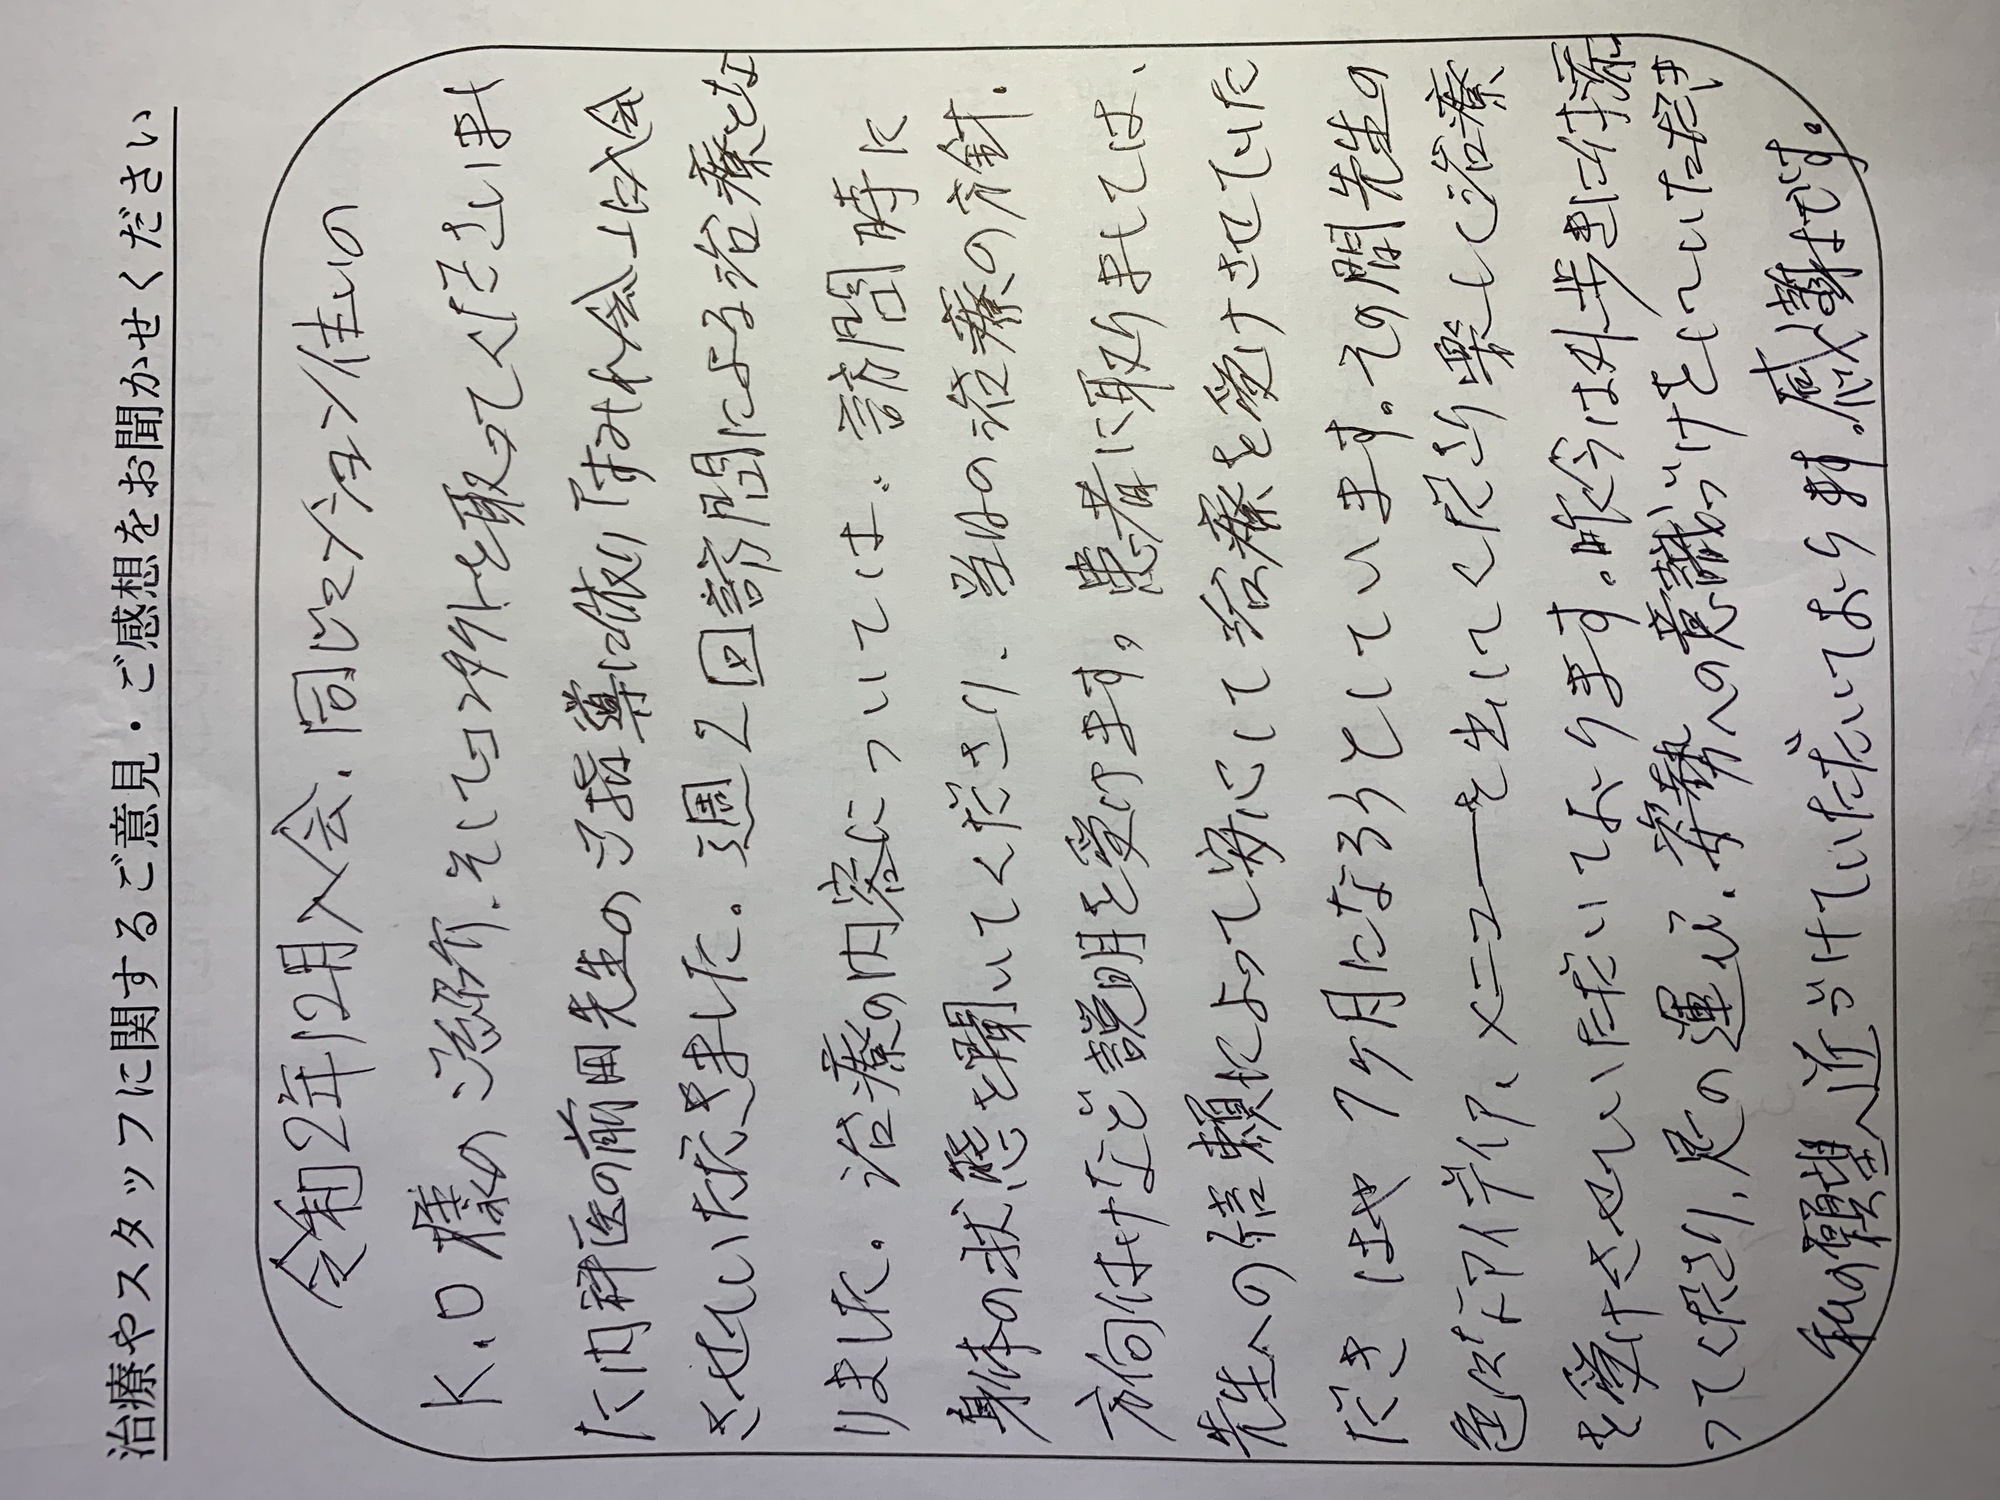 治療やスタッフに関するご意見・ご感想をお聞かせください
令和2年12月入会、同じマンション住いの
K.O様のご紹介、そしてコンタクトを取ってくださいまし
た内科医の前田先生のご指導に依り「すみれ会」に入会
させていただきました。週2回訪問による治療とな
りました。治療の内容については、訪問時に
身体の状態を聞いてくださり、当日の治療の方針、
方向付けなど説明を受けます。患者に取りましては、
先生への信頼によって安心して治療を受けさせていた
だき はや 7ヶ月になろうとしています。その間先生の
色々なアイデイア、メニューを出してくださり楽しく治療
を受けさせていただいております。昨今は外歩きに付添
ってくださり、足の運び、姿勢への意識づけをしていただき
私の願望へ近づけていただいております。感謝です。